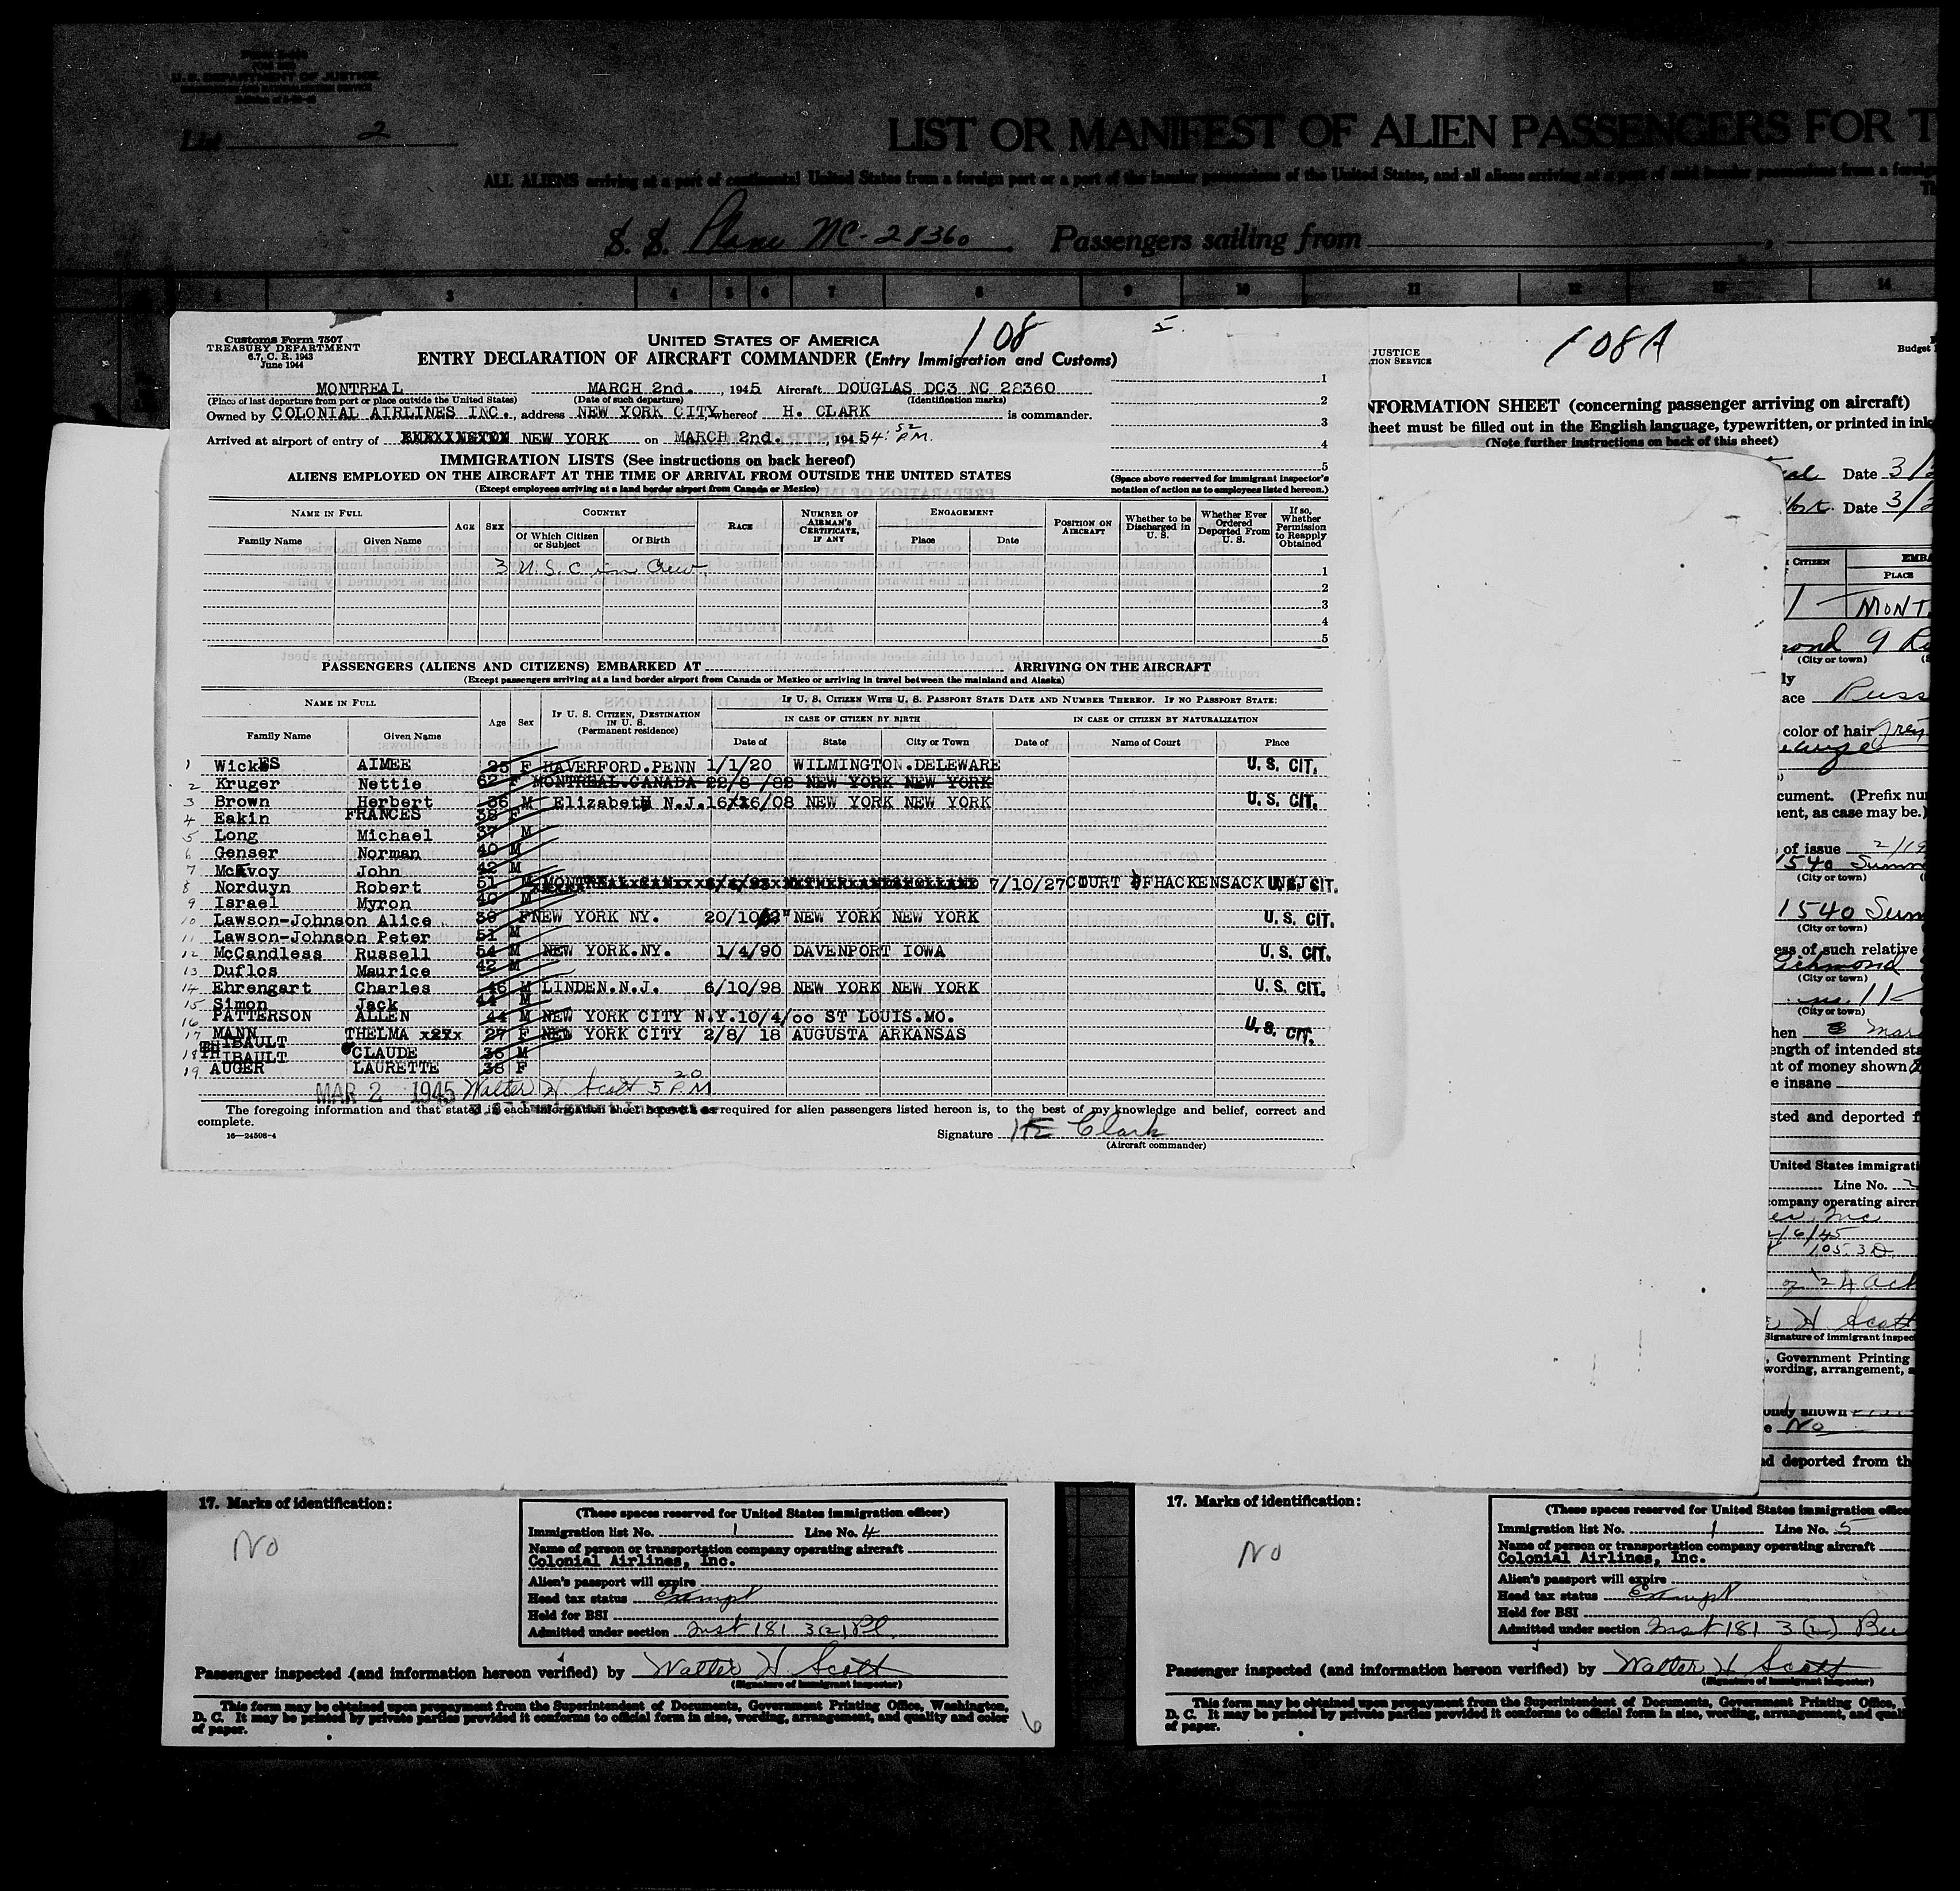 U. S. DEPARTMENT OF JUSTICE
List 2
LIST OR MANIFEST OF ALIEN PASSENGERS FOR T
ALL ALIENS arriving at a port of continental United States from a foreign port or a port of the insular possessions of the United States, and all aliens arriving at a port of said insular possessions from a foreig
S. S. Plane NC-28360 Passengers sailing from
1 3 4 5 6 7 8 9 10 11 12 13 14
Customs Form 7507
TREASURY DEPARTMENT
6.7, C. R. 1943
June 1944
UNITED STATES OF AMERICA
108
5.
ENTRY DECLARATION OF AIRCRAFT COMMANDER (Entry Immigration and Customs)
MONTREAL MARCH 2nd. , 1945 Aircraft DOUGLAS DC3 NC 28360
(Place of last departure from port or place outside the United States) (Date of such departure) (Identification marks)
Owned by COLONIAL AIRLINES INC., address NEW YORK CITY whereof H. CLARK is commander.
Arrived at airport of entry of NEW YORK on MARCH 2nd. , 1945 4:52 P.M.
1
2
3
4
5
(Space above reserved for immigrant inspector's notation of action as to employees listed hereon.)
IMMIGRATION LISTS (See instructions on back hereof)
ALIENS EMPLOYED ON THE AIRCRAFT AT THE TIME OF ARRIVAL FROM OUTSIDE THE UNITED STATES
(Except employees arriving at a land border airport from Canada or Mexico)
NAME IN FULL AGE SEX COUNTRY RACE NUMBER OF AIRMAN'S CERTIFICATE, IF ANY ENGAGEMENT POSITION ON AIRCRAFT Whether to be Discharged in U. S. Whether Ever Ordered Deported From U. S. If so, Whether Permission to Reapply Obtained
Family Name Given Name Of Which Citizen or Subject Of Birth Place Date
3 U. S. C in Crew 1
2
3
4
5
PASSENGERS (ALIENS AND CITIZENS) EMBARKED AT ARRIVING ON THE AIRCRAFT
(Except passengers arriving at a land border airport from Canada or Mexico or arriving in travel between the mainland and Alaska)
NAME IN FULL Age Sex IF U. S. CITIZEN, DESTINATION IN U. S. (Permanent residence) IF U. S. CITIZEN WITH U. S. PASSPORT STATE DATE AND NUMBER THEREOF. IF NO PASSPORT STATE:
IN CASE OF CITIZEN BY BIRTH IN CASE OF CITIZEN BY NATURALIZATION
Family Name Given Name Date of State City or Town Date of Name of Court Place
1 WickES AIMEE 25 F HAVERFORD.PENN 1/1/20 WILMINGTON.DELEWARE U. S. CIT.
2 Kruger Nettie 62 F MONTREAL.CANADA 22/8 /82 NEW YORK NEW YORK
3 Brown Herbert 36 M Elizabeth N.J. 16/08 NEW YORK NEW YORK U. S. CIT.
4 Eakin FRANCES 38 F
5 Long Michael 37 M
6 Genser Norman 40 M
7 McAvoy John 42 M
8 Norduyn Robert 51 M 7/10/27 COURT OF HACKENSACK N.J. U. S. CIT.
9 Israel Myron 40 M
10 Lawson-Johnson Alice 39 F NEW YORK NY. 20/10/ NEW YORK NEW YORK U. S. CIT.
11 Lawson-Johnson Peter 51 M
12 McCandless Russell 54 M NEW YORK.NY. 1/4/90 DAVENPORT IOWA U. S. CIT.
13 Duflos Maurice 42 M
14 Ehrengart Charles 46 M LINDEN.N.J. 6/10/98 NEW YORK NEW YORK U. S. CIT.
15 Simon Jack 44 M
16 PATTERSON ALLEN 44 M NEW YORK CITY N.Y. 10/4/00 ST LOUIS.MO.
17 MANN THELMA 27 F NEW YORK CITY 2/8/ 18 AUGUSTA ARKANSAS U. S. CIT.
18 THIBAULT CLAUDE 36 M
19 AUGER LAURETTE 38 F
MAR 2 1945 Walter H Scott 5 20 PM
The foregoing information and that stated in each information sheet herewith as required for alien passengers listed hereon is, to the best of my knowledge and belief, correct and
complete.
16—24598-4
Signature H Clark
(Aircraft commander)
JUSTICE
TION SERVICE
108A
Budget
NFORMATION SHEET (concerning passenger arriving on aircraft)
heet must be filled out in the English language, typewritten, or printed in ink
(Note further instructions on back of this sheet)
Date 3/2
Date 3/2
CITIZEN EMBA
PLACE
MONT.
(City or town)
ace Russ
color of hair grey
cument. (Prefix nu
ent, as case may be.)
of issue 2/19
1540 Summ
(City or town)
1540 Sum
ess of such relative
Richmond
(City or town)
(City or town)
hen Mar
ength of intended sta
nt of money shown
e insane
sted and deported f
United States immigrati
Line No. 2
company operating aircr
2/6/45
H Scott
Signature of immigrant inspec
, Government Printing
wording, arrangement, a
oney shown
e No
nd deported from th
17. Marks of identification:
No
(These spaces reserved for United States immigration officer)
Immigration list No. 1 Line No. 4
Name of person or transportation company operating aircraft
Colonial Airlines, Inc.
Alien's passport will expire
Head tax status Exempt
Held for BSI
Admitted under section Inst 181 3(2) Pl
Passenger inspected (and information hereon verified) by Walter H. Scott
(Signature of immigrant inspector)
This form may be obtained upon prepayment from the Superintendent of Documents, Government Printing Office, Washington,
D. C. It may be printed by private parties provided it conforms to official form in size, wording, arrangement, and quality and color
of paper.
6
17. Marks of identification:
No
(These spaces reserved for United States immigration office
Immigration list No. 1 Line No. 5
Name of person or transportation company operating aircraft
Colonial Airlines, Inc.
Alien's passport will expire
Head tax status Exempt
Held for BSI
Admitted under section Inst 181 3(2) Bu
Passenger inspected (and information hereon verified) by Walter H Scott
(Signature of immigrant inspector)
This form may be obtained upon prepayment from the Superintendent of Documents, Government Printing Office,
D. C. It may be printed by private parties provided it conforms to official form in size, wording, arrangement, and quali
of paper.